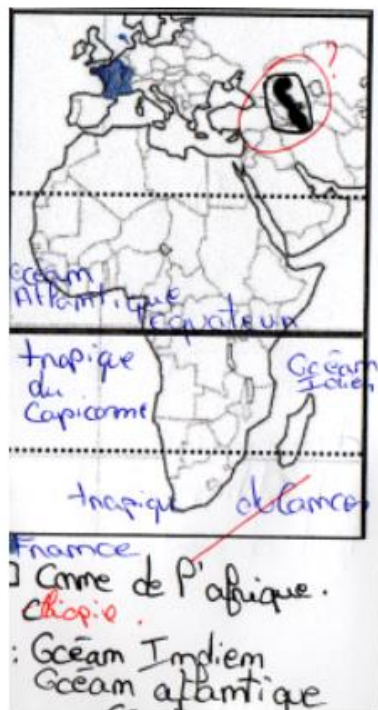 ?
Océam
Atlamtique
équateur
tnopique
du
Capiconme
Océam
Idien
tnopique du Camcer
Framce
Conme de l'afrique.
Ethiopie.
: Océam Imdiem
Océam atlamtique